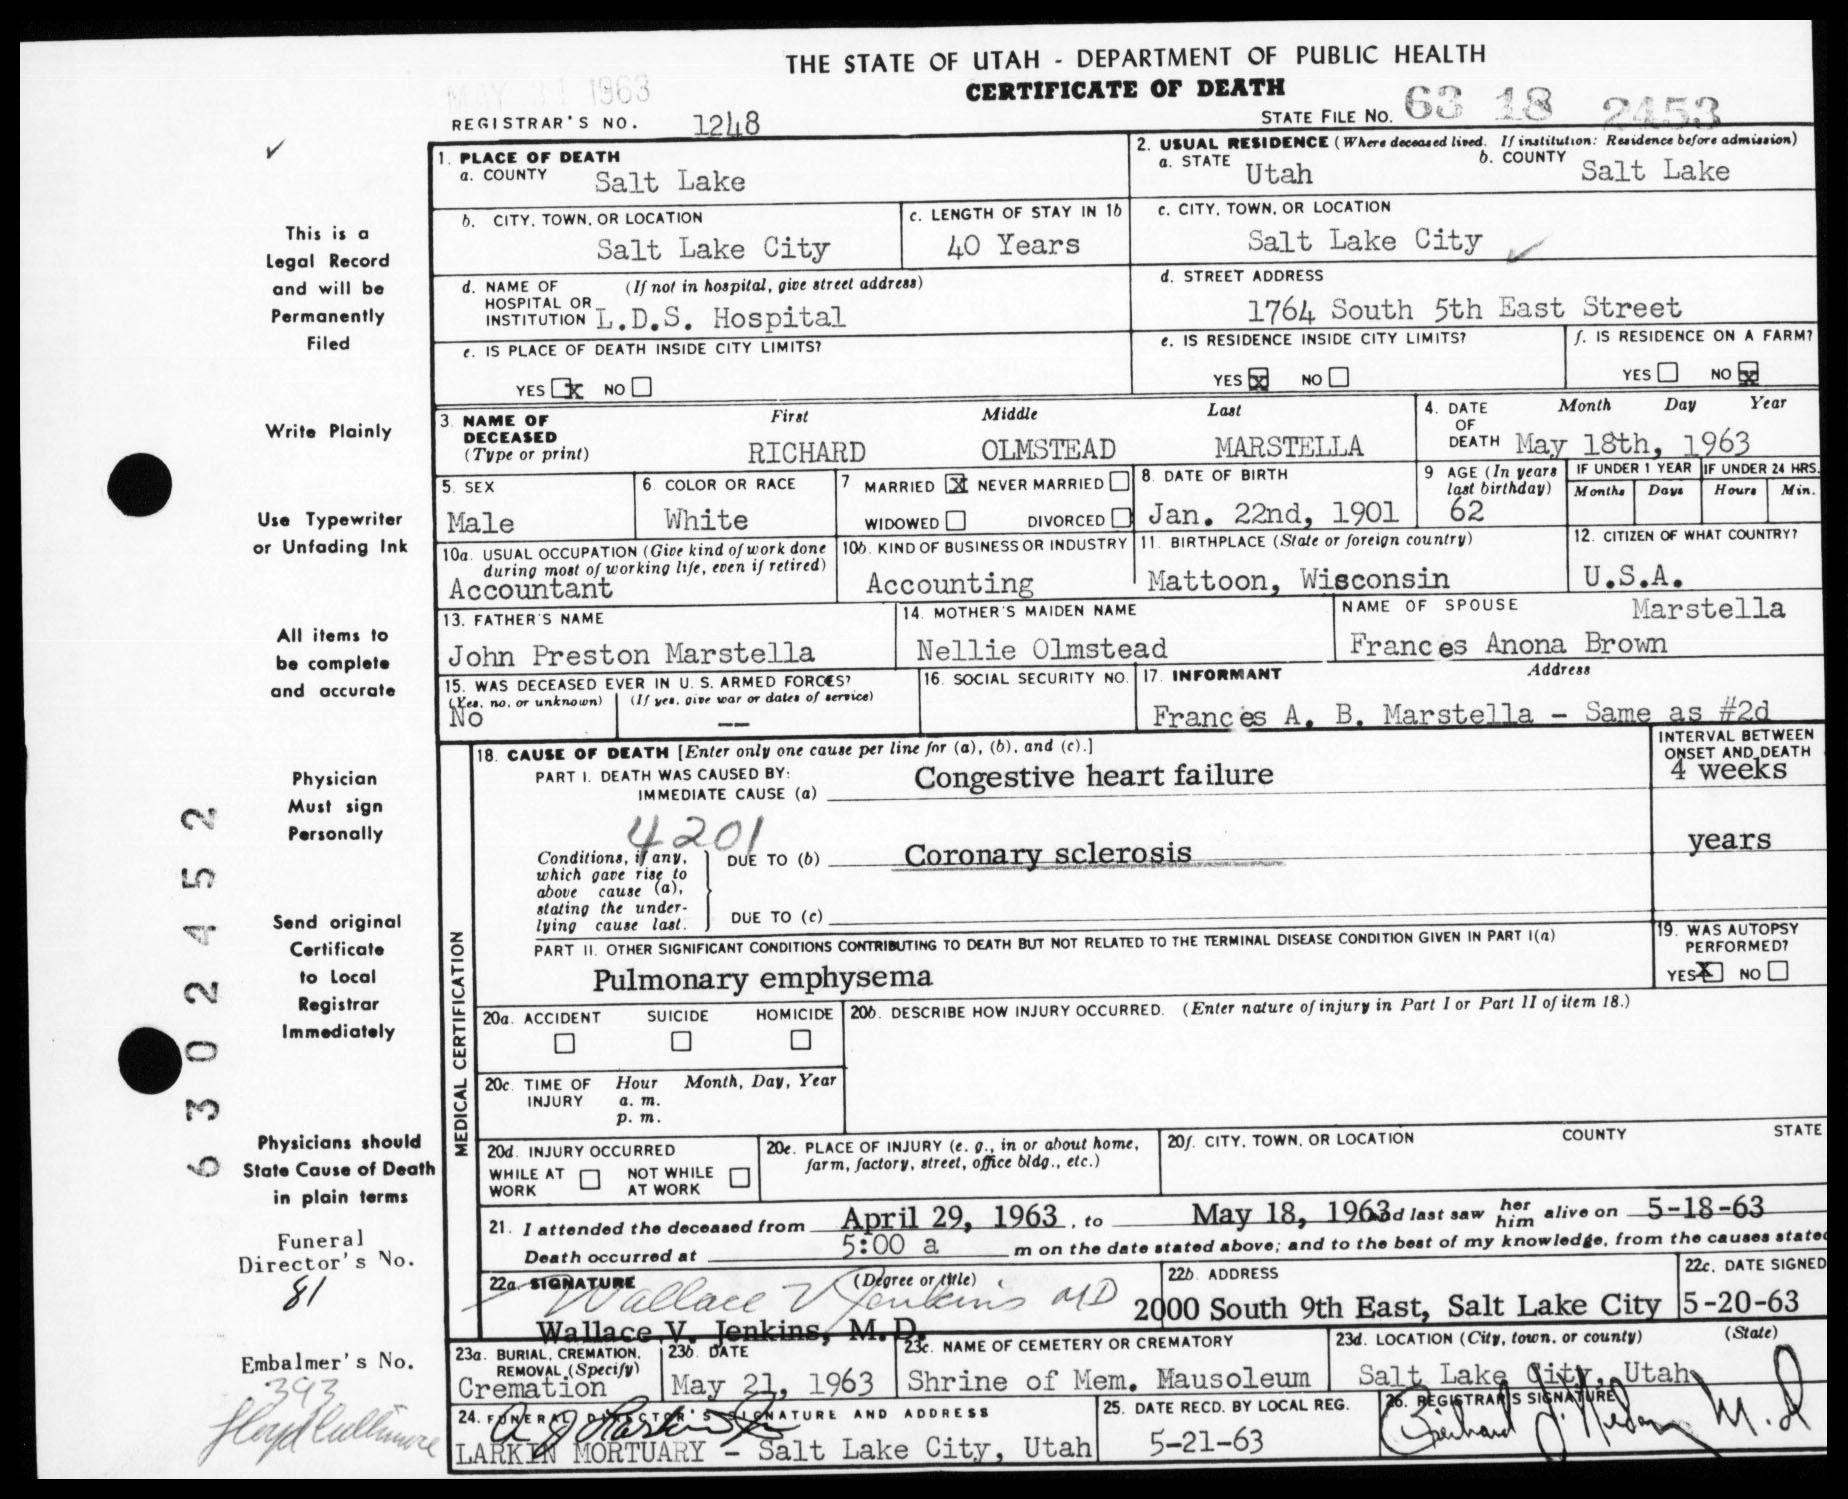 THE STATE OF UTAH - DEPARTMENT OF PUBLIC HEALTH
CERTIFICATE OF DEATH
MAY 31 1963
REGISTRAR'S NO. 1248
STATE FILE NO. 63 18 2453
This is a
Legal Record
and will be
Permanently
Filed
Write Plainly
Use Typewriter
or Unfading Ink
All items to
be complete
and accurate
Physician
Must sign
Personally
Send original
Certificate
to Local
Registrar
Immediately
Physicians should
State Cause of Death
in plain terms
Funeral
Director's No.
81
Embalmer's No.
393
Floyd Cullimore
630 2452
1. PLACE OF DEATH
a. COUNTY Salt Lake
2. USUAL RESIDENCE (Where deceased lived. If institution: Residence before admission)
a. STATE Utah b. COUNTY Salt Lake
b. CITY, TOWN, OR LOCATION
Salt Lake City
c. LENGTH OF STAY IN 1b
40 Years
c. CITY, TOWN, OR LOCATION
Salt Lake City
d. NAME OF (If not in hospital, give street address)
HOSPITAL OR
INSTITUTION L.D.S. Hospital
d. STREET ADDRESS
1764 South 5th East Street
e. IS PLACE OF DEATH INSIDE CITY LIMITS?
YES X NO
e. IS RESIDENCE INSIDE CITY LIMITS?
YES X NO
f. IS RESIDENCE ON A FARM?
YES NO X
3. NAME OF
DECEASED
(Type or print)
First Middle Last
RICHARD OLMSTEAD MARSTELLA
4. DATE OF DEATH Month Day Year
May 18th, 1963
5. SEX
Male
6. COLOR OR RACE
White
7 MARRIED X NEVER MARRIED
WIDOWED DIVORCED
8. DATE OF BIRTH
Jan. 22nd, 1901
9 AGE (In years
last birthday)
62
IF UNDER 1 YEAR IF UNDER 24 HRS.
Months Days Hours Min.
10a. USUAL OCCUPATION (Give kind of work done
during most of working life, even if retired)
Accountant
10b. KIND OF BUSINESS OR INDUSTRY
Accounting
11. BIRTHPLACE (State or foreign country)
Mattoon, Wisconsin
12. CITIZEN OF WHAT COUNTRY?
U.S.A.
13. FATHER'S NAME
John Preston Marstella
14. MOTHER'S MAIDEN NAME
Nellie Olmstead
NAME OF SPOUSE Marstella
Frances Anona Brown
15. WAS DECEASED EVER IN U. S. ARMED FORCES?
(Yes, no, or unknown) (If yes, give war or dates of service)
No --
16. SOCIAL SECURITY NO.
17. INFORMANT Address
Frances A. B. Marstella - Same as #2d
MEDICAL CERTIFICATION
18. CAUSE OF DEATH [Enter only one cause per line for (a), (b), and (c).]
INTERVAL BETWEEN
ONSET AND DEATH
PART I. DEATH WAS CAUSED BY:
IMMEDIATE CAUSE (a) Congestive heart failure 4 weeks
4201
Conditions, if any,
which gave rise to
above cause (a),
stating the under-
lying cause last.
DUE TO (b) Coronary sclerosis years
DUE TO (c)
PART II. OTHER SIGNIFICANT CONDITIONS CONTRIBUTING TO DEATH BUT NOT RELATED TO THE TERMINAL DISEASE CONDITION GIVEN IN PART I(a)
Pulmonary emphysema
19. WAS AUTOPSY
PERFORMED?
YES X NO
20a. ACCIDENT SUICIDE HOMICIDE
20b. DESCRIBE HOW INJURY OCCURRED. (Enter nature of injury in Part I or Part II of item 18.)
20c. TIME OF Hour Month, Day, Year
INJURY a. m.
p. m.
20d. INJURY OCCURRED
WHILE AT
WORK
NOT WHILE
AT WORK
20e. PLACE OF INJURY (e. g., in or about home,
farm, factory, street, office bldg., etc.)
20f. CITY, TOWN, OR LOCATION COUNTY STATE
21. I attended the deceased from April 29, 1963, to May 18, 1963 and last saw her him alive on 5-18-63
Death occurred at 5:00 a m on the date stated above; and to the best of my knowledge, from the causes stated
22a. SIGNATURE (Degree or title)
Wallace V Jenkins MD
Wallace V. Jenkins, M.D.
22b. ADDRESS
2000 South 9th East, Salt Lake City
22c. DATE SIGNED
5-20-63
23a. BURIAL, CREMATION,
REMOVAL (Specify)
Cremation
23b. DATE
May 21, 1963
23c. NAME OF CEMETERY OR CREMATORY
Shrine of Mem. Mausoleum
23d. LOCATION (City, town, or county) (State)
Salt Lake City, Utah
24. FUNERAL DIRECTOR'S SIGNATURE AND ADDRESS
LARKIN MORTUARY - Salt Lake City, Utah
25. DATE RECD. BY LOCAL REG.
5-21-63
26. REGISTRAR'S SIGNATURE
M.D